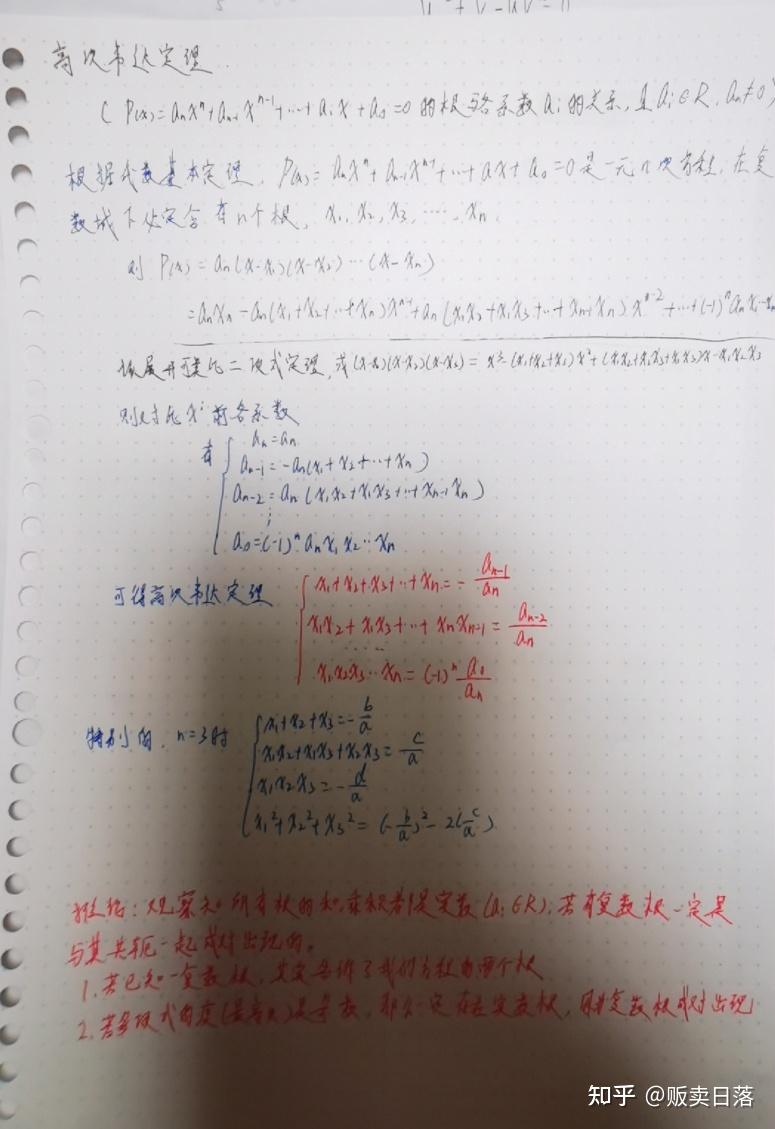 高次韦达定理
( P(x)=aₙxⁿ+aₙ₋₁xⁿ⁻¹+…+a₁x+a₀=0 的根与各系数aᵢ的关系, 且aᵢ∈R, aₙ≠0)
根据代数基本定理, P(x)=aₙxⁿ+aₙ₋₁xⁿ⁻¹+…+ax+a₀=0是一元n次方程, 在复
数域下必定含有n个根, x₁, x₂, x₃, …, xₙ.
则 P(x)=aₙ(x-x₁)(x-x₂)…(x-xₙ)
=aₙxₙ-aₙ(x₁+x₂+…+xₙ)xⁿ⁻¹+aₙ(x₁x₂+x₁x₃+…+xₙ₋₁xₙ)xⁿ⁻²+…+(-1)ⁿaₙx₁…xₙ
展开可类比二项式定理, 或(x-x₁)(x-x₂)(x-x₃)=x³-(x₁+x₂+x₃)x²+(x₁x₂+x₁x₃+x₂x₃)x-x₁x₂x₃
则对比xⁱ前各系数
有 { aₙ=aₙ
aₙ₋₁=-aₙ(x₁+x₂+…+xₙ)
aₙ₋₂=aₙ(x₁x₂+x₁x₃+…+xₙ₋₁xₙ)
⋮
a₀=(-1)ⁿaₙx₁x₂…xₙ
可得高次韦达定理 { x₁+x₂+x₃+…+xₙ=-aₙ₋₁/aₙ
x₁x₂+x₁x₃+…+xₙxₙ₋₁=aₙ₋₂/aₙ
……
x₁x₂x₃…xₙ=(-1)ⁿa₀/aₙ
特别的, n=3时 { x₁+x₂+x₃=-b/a
x₁x₂+x₁x₃+x₂x₃=c/a
x₁x₂x₃=-d/a
x₁²+x₂²+x₃²=(-b/a)²-2(c/a)
推论: 观察知所有根的和,乘积都是实数(aᵢ∈R), 若有复数根一定是
与其共轭一起成对出现的。
1. 若已知一复数根, 其实告诉了我们方程的两个根
2. 若多项式的度(最高次)是奇数, 那么一定存在实数根, 因为复数根成对出现
知乎 @贩卖日落